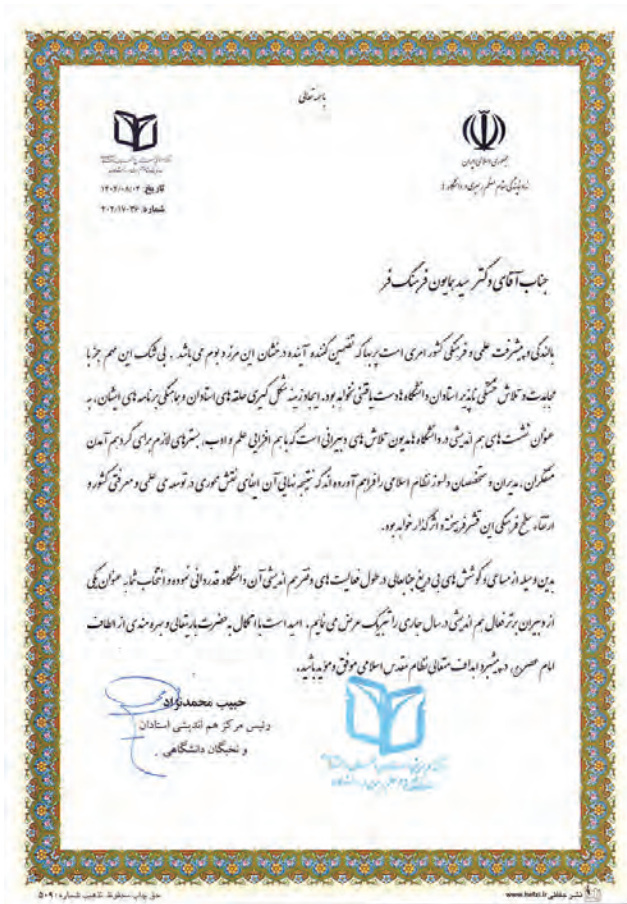 باسمه تعالی
جمهوری اسلامی ایران
نهاد نمایندگی مقام معظم رهبری در دانشگاه ها
تاریخ: ۱۴۰۲/۰۸/۰۲
جناب آقای دکتر سید همایون فرهنگ فر
بالندگی و پیشرفت علمی و فرهنگی کشور امری است پربها که تضمین کننده آینده درخشان این مرز و بوم می باشد . بی شک این مهم جز با
مجاهدت و تلاش خستگی ناپذیر استادان دانشگاه ها دست یافتنی نخواهد بود. ایجاد زمینه شکل گیری حلقه های استادان و هماهنگی برنامه های ایشان، به
عنوان نشست های هم اندیشی در دانشگاه ها مدیون تلاش های دبیرانی است که با هم افزایی علم و ادب، بسترهای لازم برای گردهم آمدن
متفکران، مدیران و متخصصان دلسوز نظام اسلامی را فراهم آورده اند که نتیجه نهایی آن ایفای نقش محوری در توسعه ی علمی و معرفتی کشور و
ارتقاء سطح فرهنگی این قشر فریخته و اثرگذار خواهد بود.
بدین وسیله از مساعی و کوشش های بی دریغ جنابعالی در طول فعالیت های دفتر هم اندیشی آن دانشگاه قدردانی نموده و انتخاب شما به عنوان یکی
از دبیران برتر فعال هم اندیشی در سال جاری را تبریک عرض می نمایم. امید است با اتکال به حضرت باریتعالی و بهره مندی از الطاف
امام عصر، در پیشبرد اهداف متعالی نظام مقدس اسلامی موفق و مؤید باشید.
حبیب محمدنژاد
رئیس مرکز هم اندیشی استادان
و نخبگان دانشگاهی
نشر حافظی www.hafzi.ir
حق چاپ محفوظ، تذهیب شماره: ۵۰۹